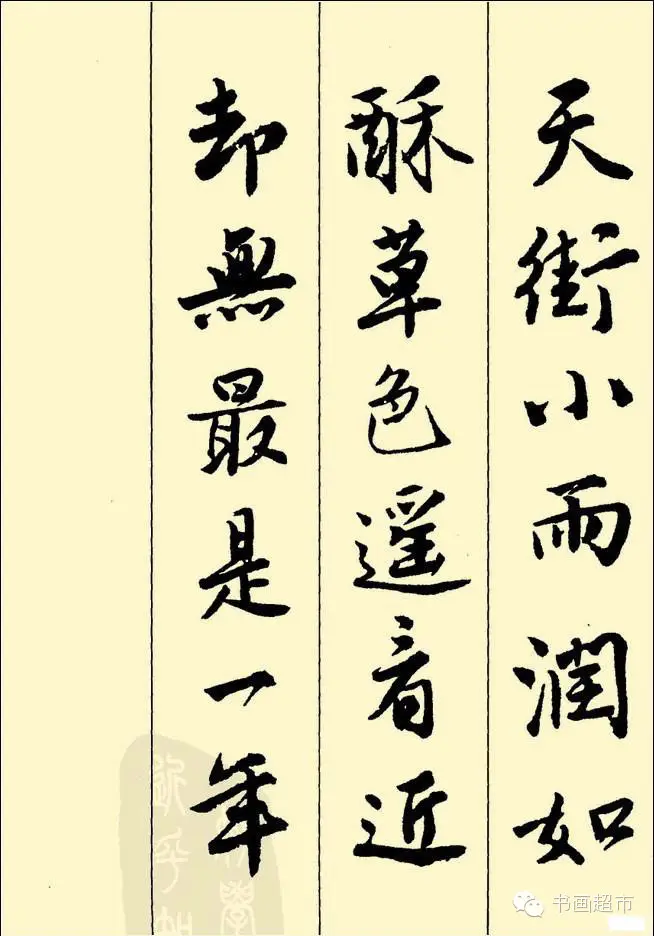 天街小雨潤如
酥草色遥看近
却無最是一年
书画超市